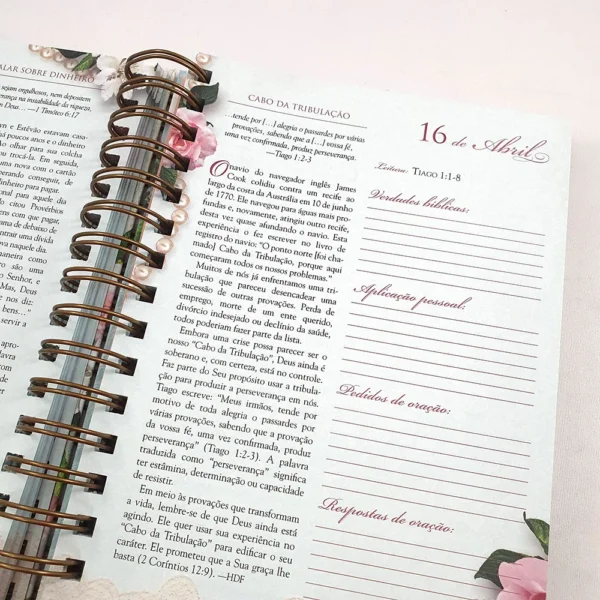 ALAR SOBRE DINHEIRO
sejam orgulhosos, nem depositem
na instabilidade da riqueza,
Deus... —1 Timóteo 6:17
n e Estêvão estavam casa-
há poucos anos e o dinheiro
olhar para sua colcha
trocá-la. Em seguida,
uma nova com o cartão
perando conseguir, de
dinheiro para pagar.
onal para aquele dia
citou Provérbios
ens com que pagar,
ma de debaixo de
ntrair uma dívida
va naquele dia.
maneira como
são uma
Senhor, e
Mas, Deus
nos diz:
bens..."
servir a
apro-
lavra
com
CABO DA TRIBULAÇÃO
...tende por [...] alegria o passardes por várias
provações, sabendo que a [...] vossa fé,
uma vez confirmada, produz perseverança.
—Tiago 1:2-3
O navio do navegador inglês James
Cook colidiu contra um recife ao
largo da costa da Austrália em 10 de junho
de 1770. Ele navegou para águas mais pro-
fundas e, novamente, atingiu outro recife,
desta vez quase afundando o navio. Esta
experiência o fez escrever no livro de
registro do navio: "O ponto norte [foi cha-
mado] Cabo da Tribulação, porque aqui
começaram todos os nossos problemas."
Muitos de nós já enfrentamos uma tri-
bulação que pareceu desencadear uma
sucessão de outras provações. Perda de
emprego, morte de um ente querido,
divórcio indesejado ou declínio da saúde,
todos poderiam fazer parte da lista.
Embora uma crise possa parecer ser o
nosso "Cabo da Tribulação", Deus ainda é
soberano e, com certeza, está no controle.
Faz parte do Seu propósito usar a tribula-
ção para produzir a perseverança em nós.
Tiago escreve: "Meus irmãos, tende por
motivo de toda alegria o passardes por
várias provações, sabendo que a provação
da vossa fé, uma vez confirmada, produz
perseverança" (Tiago 1:2-3). A palavra
traduzida como "perseverança" significa
ter estâmina, determinação ou capacidade
de resistir.
Em meio às provações que transformam
a vida, lembre-se de que Deus ainda está
agindo. Ele quer usar sua experiência no
"Cabo da Tribulação" para edificar o seu
caráter. Ele prometeu que a Sua graça lhe
basta (2 Coríntios 12:9). —HDF
16 de Abril
Leitura: TIAGO 1:1-8
Verdades bíblicas:
Aplicação pessoal:
Pedidos de oração:
Respostas de oração: